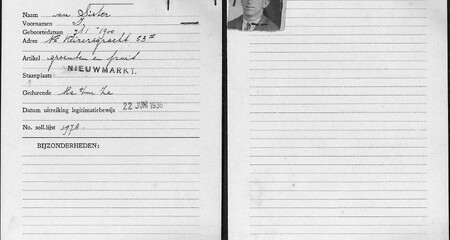 Naam van Sister
Voornamen J.
Geboortedatum 7/1 - 1900
Adres Nwe Keizersgracht 53 II
Artikel groenten en fruit
Staanplaats NIEUWMARKT.
Gedurende Ma t/m Za
Datum uitreiking legitimatiebewijs 22 JUNI 1936
No. soll.lijst 1970.
BIJZONDERHEDEN: